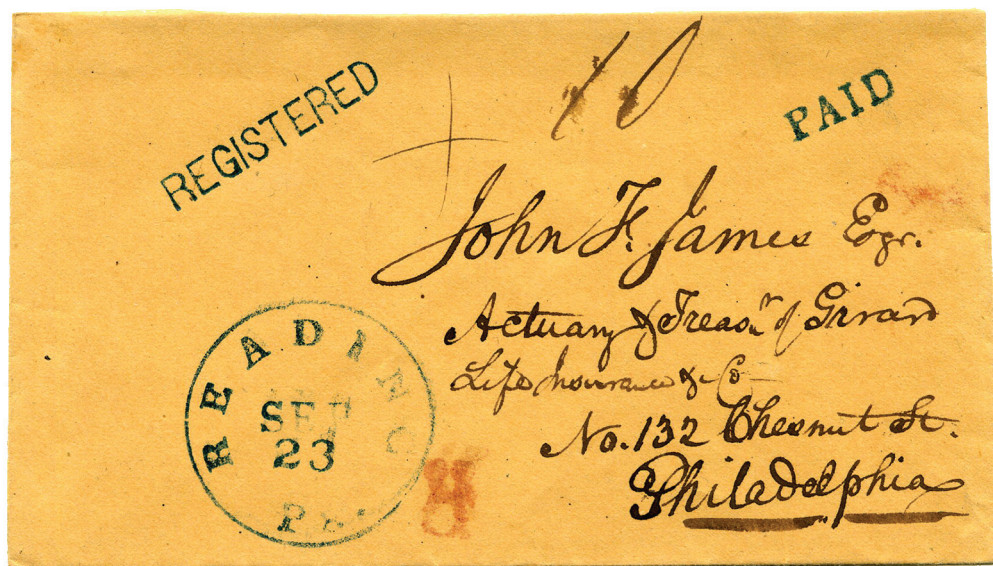 REGISTERED
10
PAID
John F. James Esqr.
Actuary & Treasr. of Girard
Life Insurance & Co
No. 132 Chesnut St.
Philadelphia
READING
SEP
23
PA.